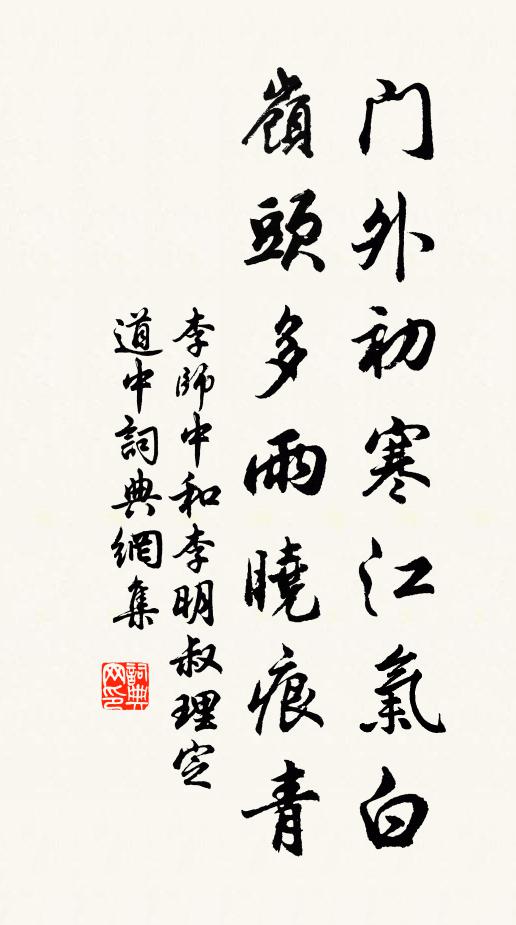 門外初寒江氣白
嶺頭多雨曉痕青
李師中和李明叔理定
道中詞典網集
詞典
网印